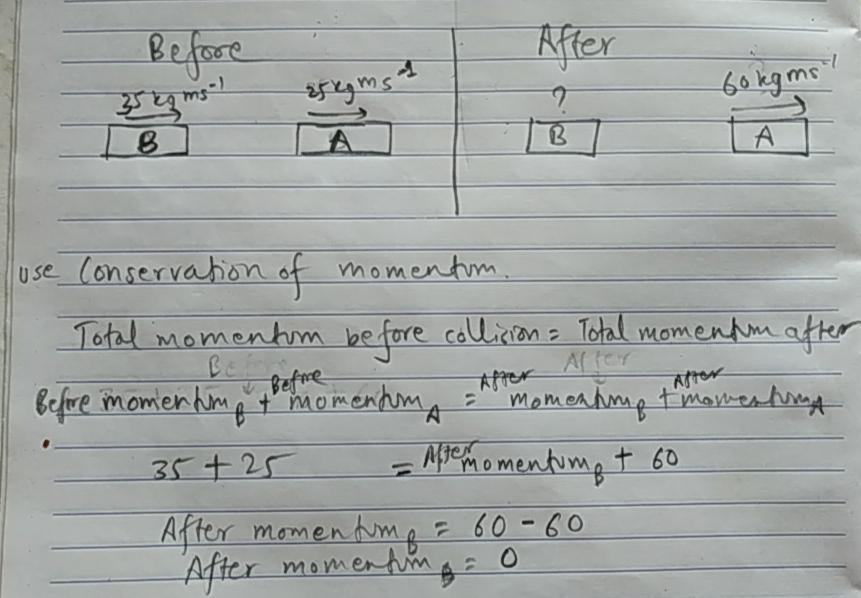 Before After
35 kg ms⁻¹ 25 kg ms⁻¹ ? 60 kg ms⁻¹
B A B A
use Conservation of momentum.
Total momentum before collision = Total momentum after
Before After
Before momentum_B + Before momentum_A = After momentum_B + After momentum_A
35 + 25 = After momentum_B + 60
After momentum_B = 60 - 60
After momentum_B = 0